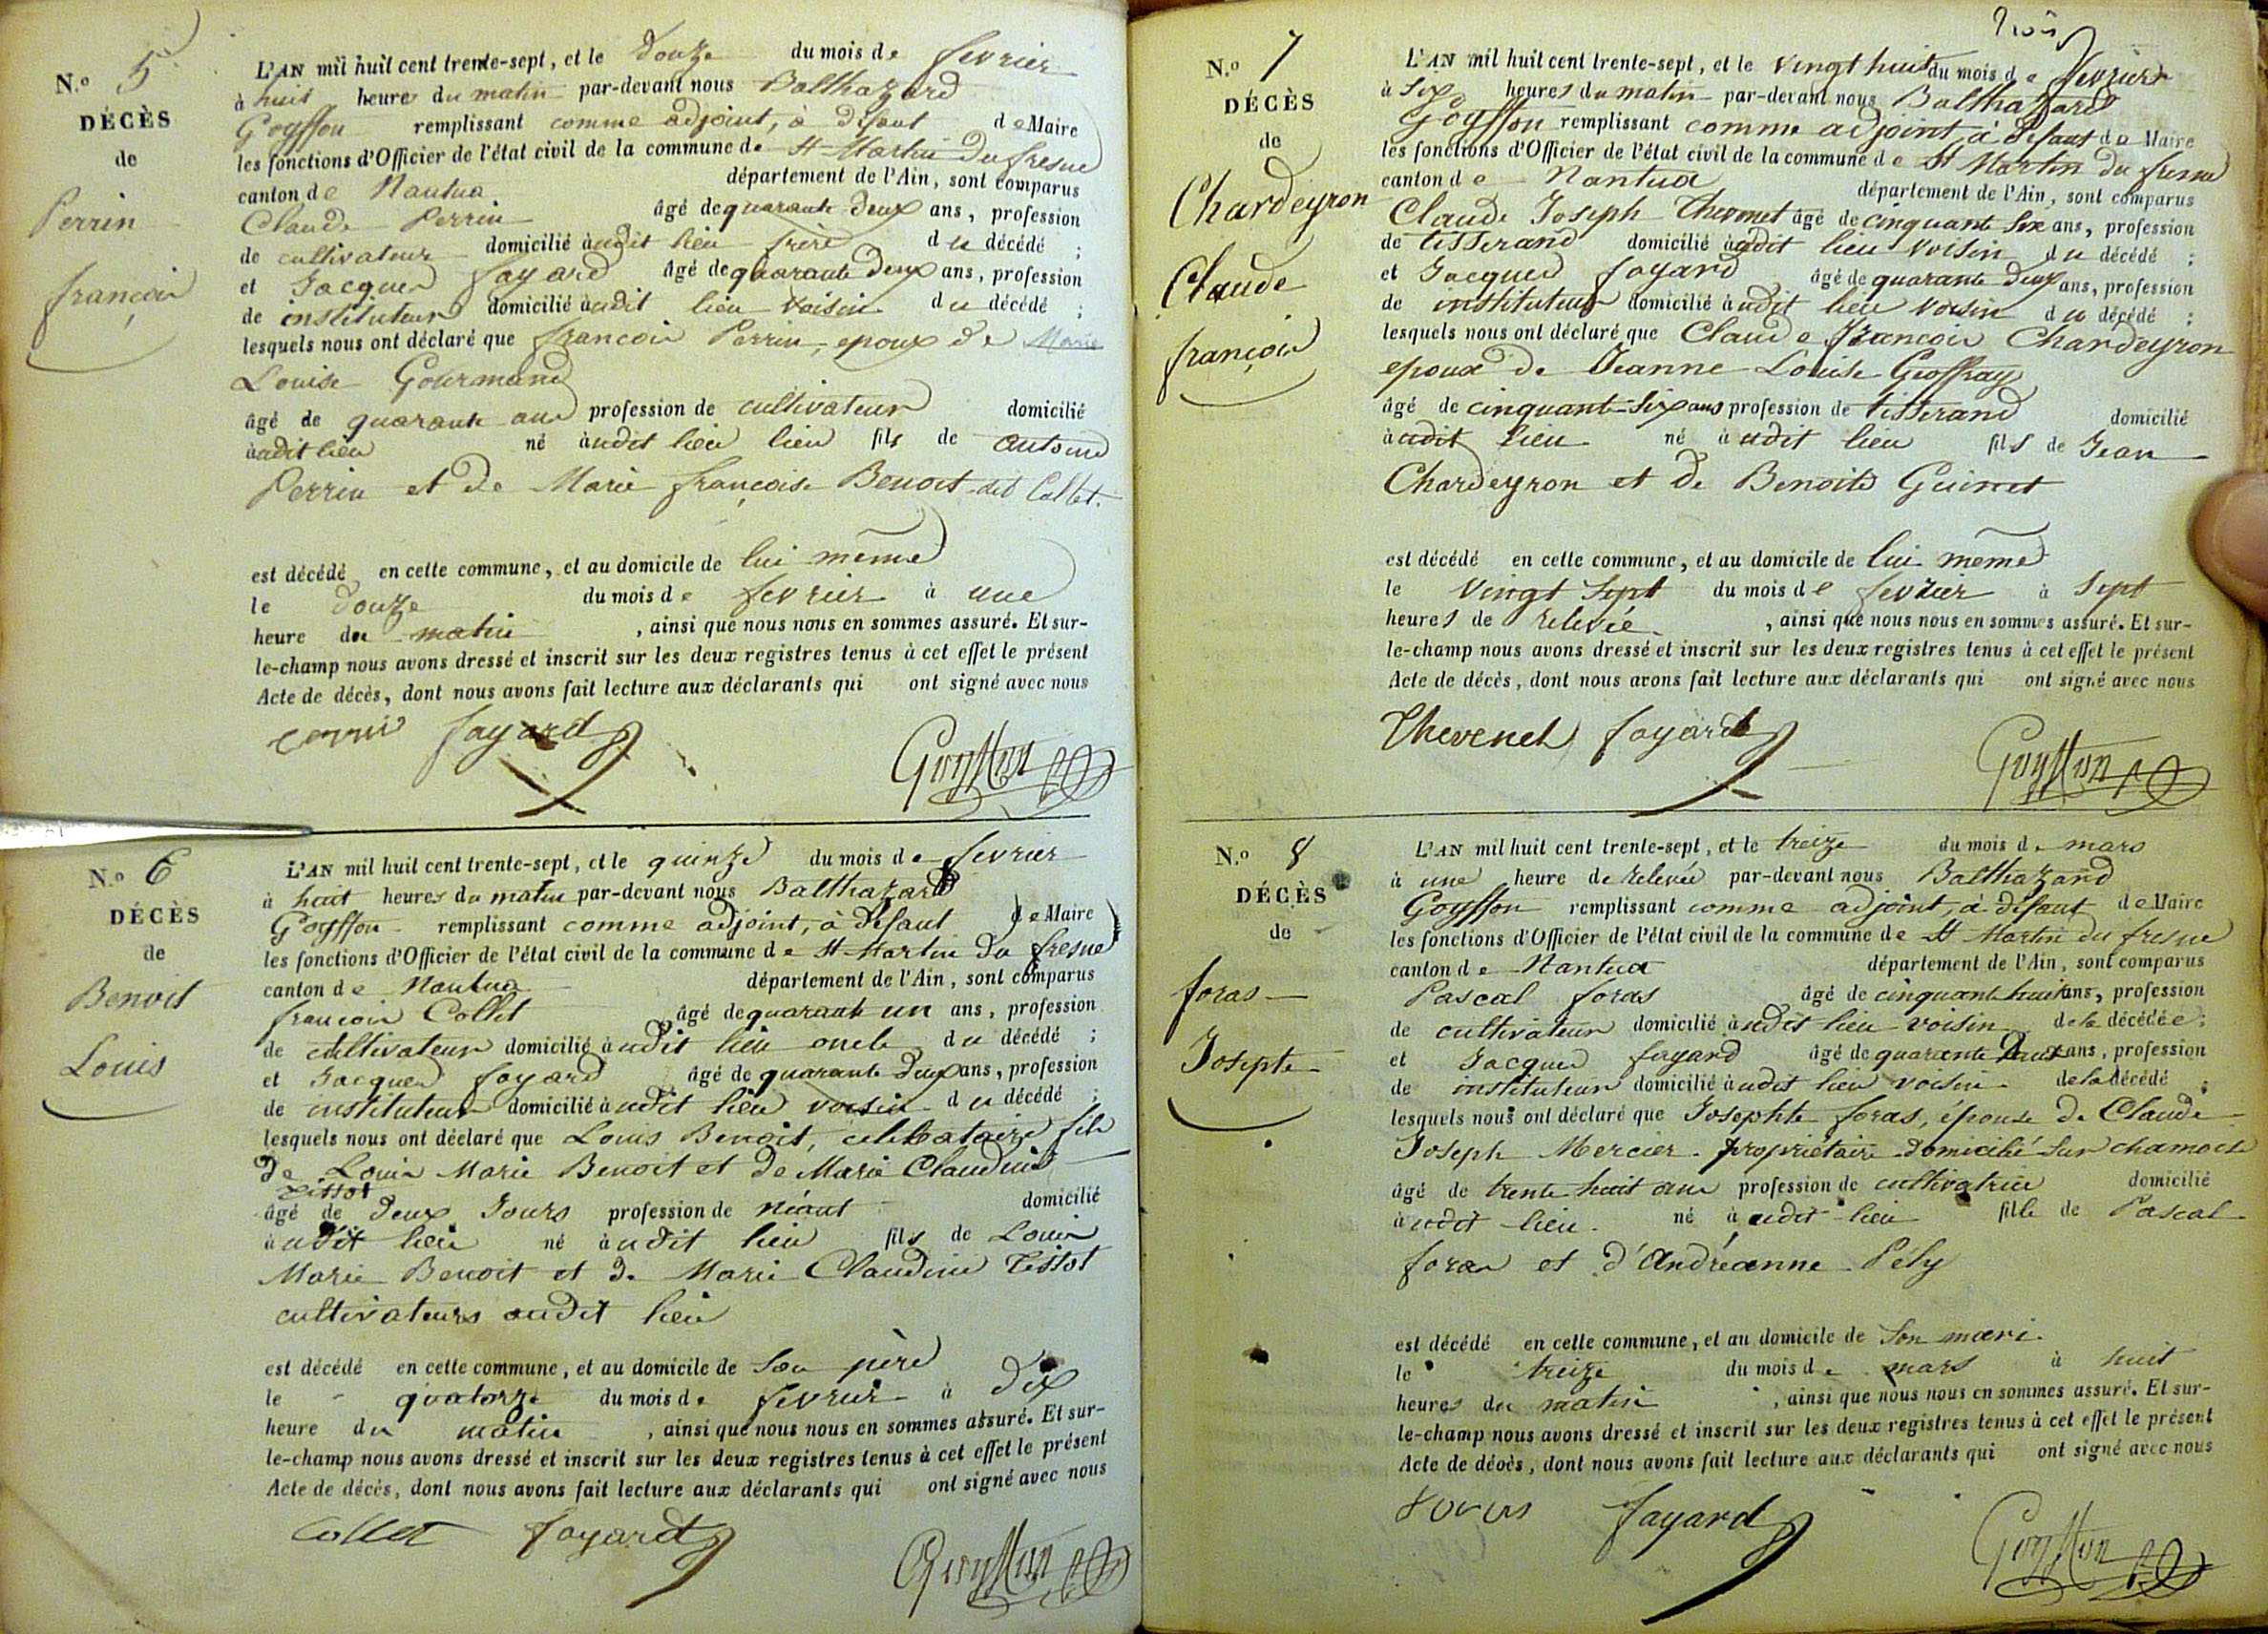 N.o 5
DÉCÈS
de
Perrin
françois
L'AN mil huit cent trente-sept, et le douze du mois de fevrier
à huit heures du matin par-devant nous Balthazard
Goyffon remplissant comme adjoint, à défaut de Maire
les fonctions d'Officier de l'état civil de la commune de St Martin du fresne
canton de Nantua département de l'Ain, sont comparus
Claude Perrin âgé de quarante deux ans, profession
de cultivateur domicilié audit lieu frère du décédé ;
et Jacques fayard âgé de quarante deux ans, profession
de instituteur domicilié audit lieu voisin du décédé ;
lesquels nous ont déclaré que françois Perrin, epoux de Marie
Louise Gourmand
âgé de quarante ans profession de cultivateur domicilié
audit lieu né audit lieu lieu fils de antoine
Perrin et de Marie françoise Benoit dit Collet.
est décédé en cette commune, et au domicile de lui même
le douze du mois de fevrier à une
heure du matin , ainsi que nous nous en sommes assuré. Et sur-
le-champ nous avons dressé et inscrit sur les deux registres tenus à cet effet le présent
Acte de décès, dont nous avons fait lecture aux déclarants qui ont signé avec nous
fayard Goyffon
N.o 6
DÉCÈS
de
Benoit
Louis
L'AN mil huit cent trente-sept, et le quinze du mois de fevrier
à huit heures du matin par-devant nous Balthazard
Goyffon remplissant comme adjoint, à défaut de Maire
les fonctions d'Officier de l'état civil de la commune de St Martin du fresne
canton de Nantua département de l'Ain, sont comparus
françois Collet âgé de quarante un ans, profession
de cultivateur domicilié audit lieu oncle du décédé ;
et Jacques fayard âgé de quarante deux ans, profession
de instituteur domicilié audit lieu voisin du décédé ;
lesquels nous ont déclaré que Louis Benoit, celibataire fils
de Louis Marie Benoit et de Marie Claudine
Tissot
âgé de deux Jours profession de néant domicilié
audit lieu né audit lieu fils de Louis
Marie Benoit et de Marie Claudine Tissot
cultivateurs audit lieu
est décédé en cette commune, et au domicile de son père
le quatorze du mois de fevrier à dix
heure du matin , ainsi que nous nous en sommes assuré. Et sur-
le-champ nous avons dressé et inscrit sur les deux registres tenus à cet effet le présent
Acte de décès, dont nous avons fait lecture aux déclarants qui ont signé avec nous
Collet fayard Goyffon
N.o 7
DÉCÈS
de
Chardeyron
Claude
françois
L'AN mil huit cent trente-sept, et le vingt huit du mois de fevrier
à six heures du matin par-devant nous Balthazard
Goyffon remplissant comme adjoint à défaut de Maire
les fonctions d'Officier de l'état civil de la commune de St Martin du fresne
canton de Nantua département de l'Ain, sont comparus
Claude Joseph Thevenet âgé de cinquante six ans, profession
de tisserand domicilié audit lieu voisin du décédé ;
et Jacques fayard âgé de quarante deux ans, profession
de instituteur domicilié audit lieu voisin du décédé ;
lesquels nous ont déclaré que Claude françois Chardeyron
epoux de Jeanne Louise Geoffray
âgé de cinquante-six ans profession de tisserand domicilié
audit lieu né audit lieu fils de Jean
Chardeyron et de Benoite Guinet
est décédé en cette commune, et au domicile de lui même
le vingt sept du mois de fevrier à sept
heures de relevée , ainsi que nous nous en sommes assuré. Et sur-
le-champ nous avons dressé et inscrit sur les deux registres tenus à cet effet le présent
Acte de décès, dont nous avons fait lecture aux déclarants qui ont signé avec nous
Thevenet fayard Goyffon
N.o 8
DÉCÈS
de
foras
Josephte
L'AN mil huit cent trente-sept, et le treize du mois de mars
à une heure de relevée par-devant nous Balthazard
Goyffon remplissant comme adjoint, à défaut de Maire
les fonctions d'Officier de l'état civil de la commune de St Martin du fresne
canton de Nantua département de l'Ain, sont comparus
Pascal foras âgé de cinquante huit ans, profession
de cultivateur domicilié audit lieu voisin de la décédée ;
et Jacques fayard âgé de quarante deux ans, profession
de instituteur domicilié audit lieu voisin de la décédé ;
lesquels nous ont déclaré que Josephte foras, épouse de Claude
Joseph Mercier propriétaire domicilié sur chamoise
âgé de trente huit ans profession de cultivatrice domicilié
audit lieu né audit lieu fille de Pascal
foras et d'Andréanne Pély
est décédé en cette commune, et au domicile de son mari
le treize du mois de mars à huit
heures du matin , ainsi que nous nous en sommes assuré. Et sur-
le-champ nous avons dressé et inscrit sur les deux registres tenus à cet effet le présent
Acte de décès, dont nous avons fait lecture aux déclarants qui ont signé avec nous
foras fayard Goyffon